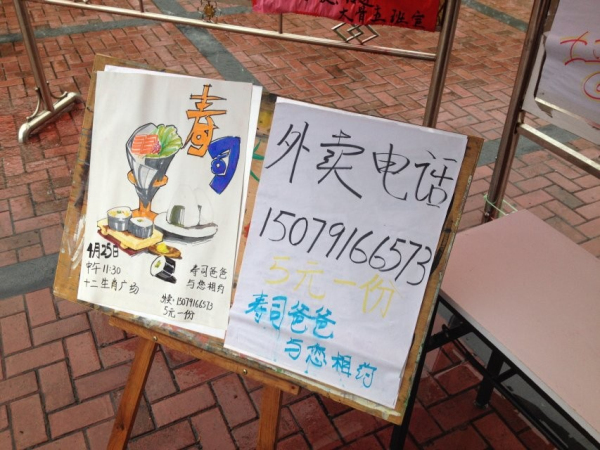 寿司
4月25日
中午11:30
十二生肖广场
寿司爸爸
与您相约
外卖:15079166573
5元一份
外卖电话
15079166573
5元一份
寿司爸爸
与您相约